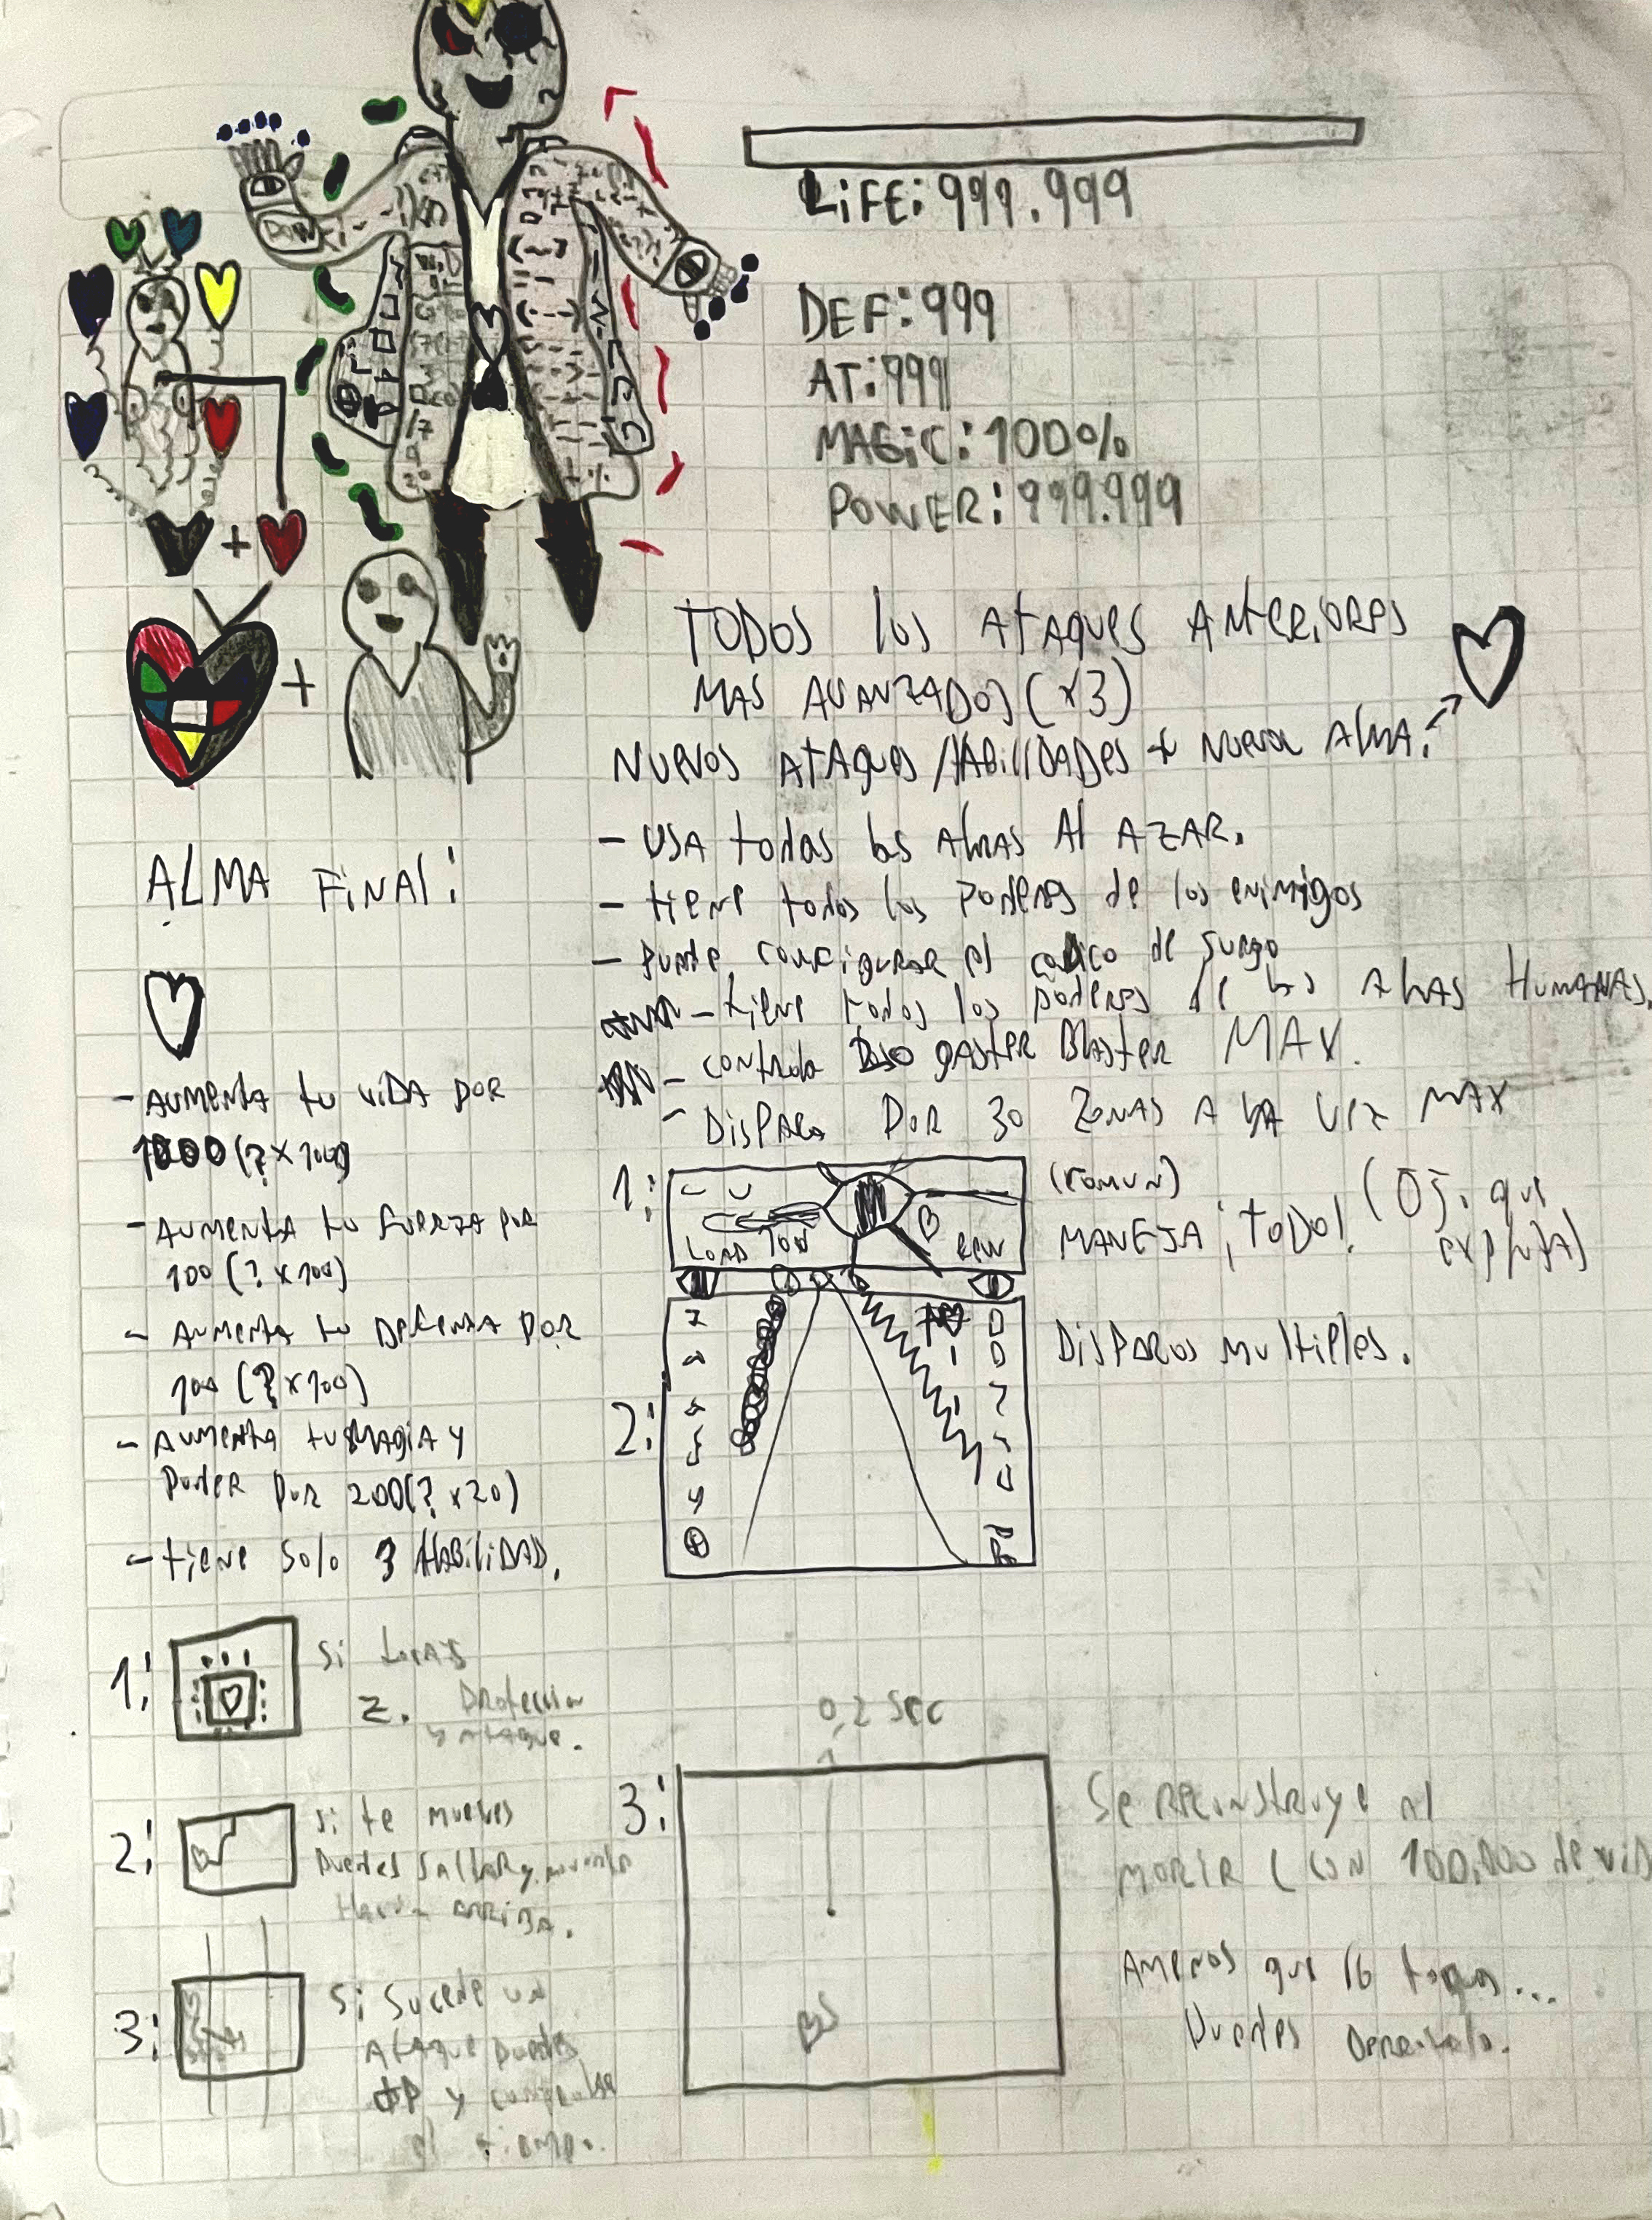 LIFE: 999.999
DEF: 999
AT: 999
MAGIC: 100%
POWER: 999.999
TODOS los ATAques ANTERiORES
MAS AVANZADOS (x3)
NUEVOS ATAques/HABiliDADes + Nueva AlMA:
- USA todas las Almas Al AZAR.
- tiene todos los Poderes de los enimigos
- Puede configurar el codico de Juego
- tiene todos los poderes de las Almas HUMANAS.
- controla gASTER BlASTER MAX.
- DisPARA POR 30 ZONAS A LA VEZ MAX
ALMA FiNAl:
- AUMENTA tu viDA POR
1000 (? x 100)
- AUMENTA tu fuerZA por
100 (? x 100)
- AUMENTA tu DefenSA POR
100 (? x 100)
- AUMENTA tu MAGiA y
Poder Por 200 (? x 20)
- tiene solo 3 HABiliDAD.
1:
LOAD
(COMUN)
MANEJA ¡TODO! (Oj. que
explota)
2:
DisPAROS MultiPles.
1:
Si tocas
Z. Proteccion
y Ataque.
2:
Si te mueves
Puedes SAltar y
Hacia ARRiBA.
3:
Si Sucede un
Ataque Puedes
y controlar
el tiempo.
0,2 SEC
3:
Se Reconstruye Al
MORiR (CON 100.000 de viD
Amenos que lo toqu...
Puedes